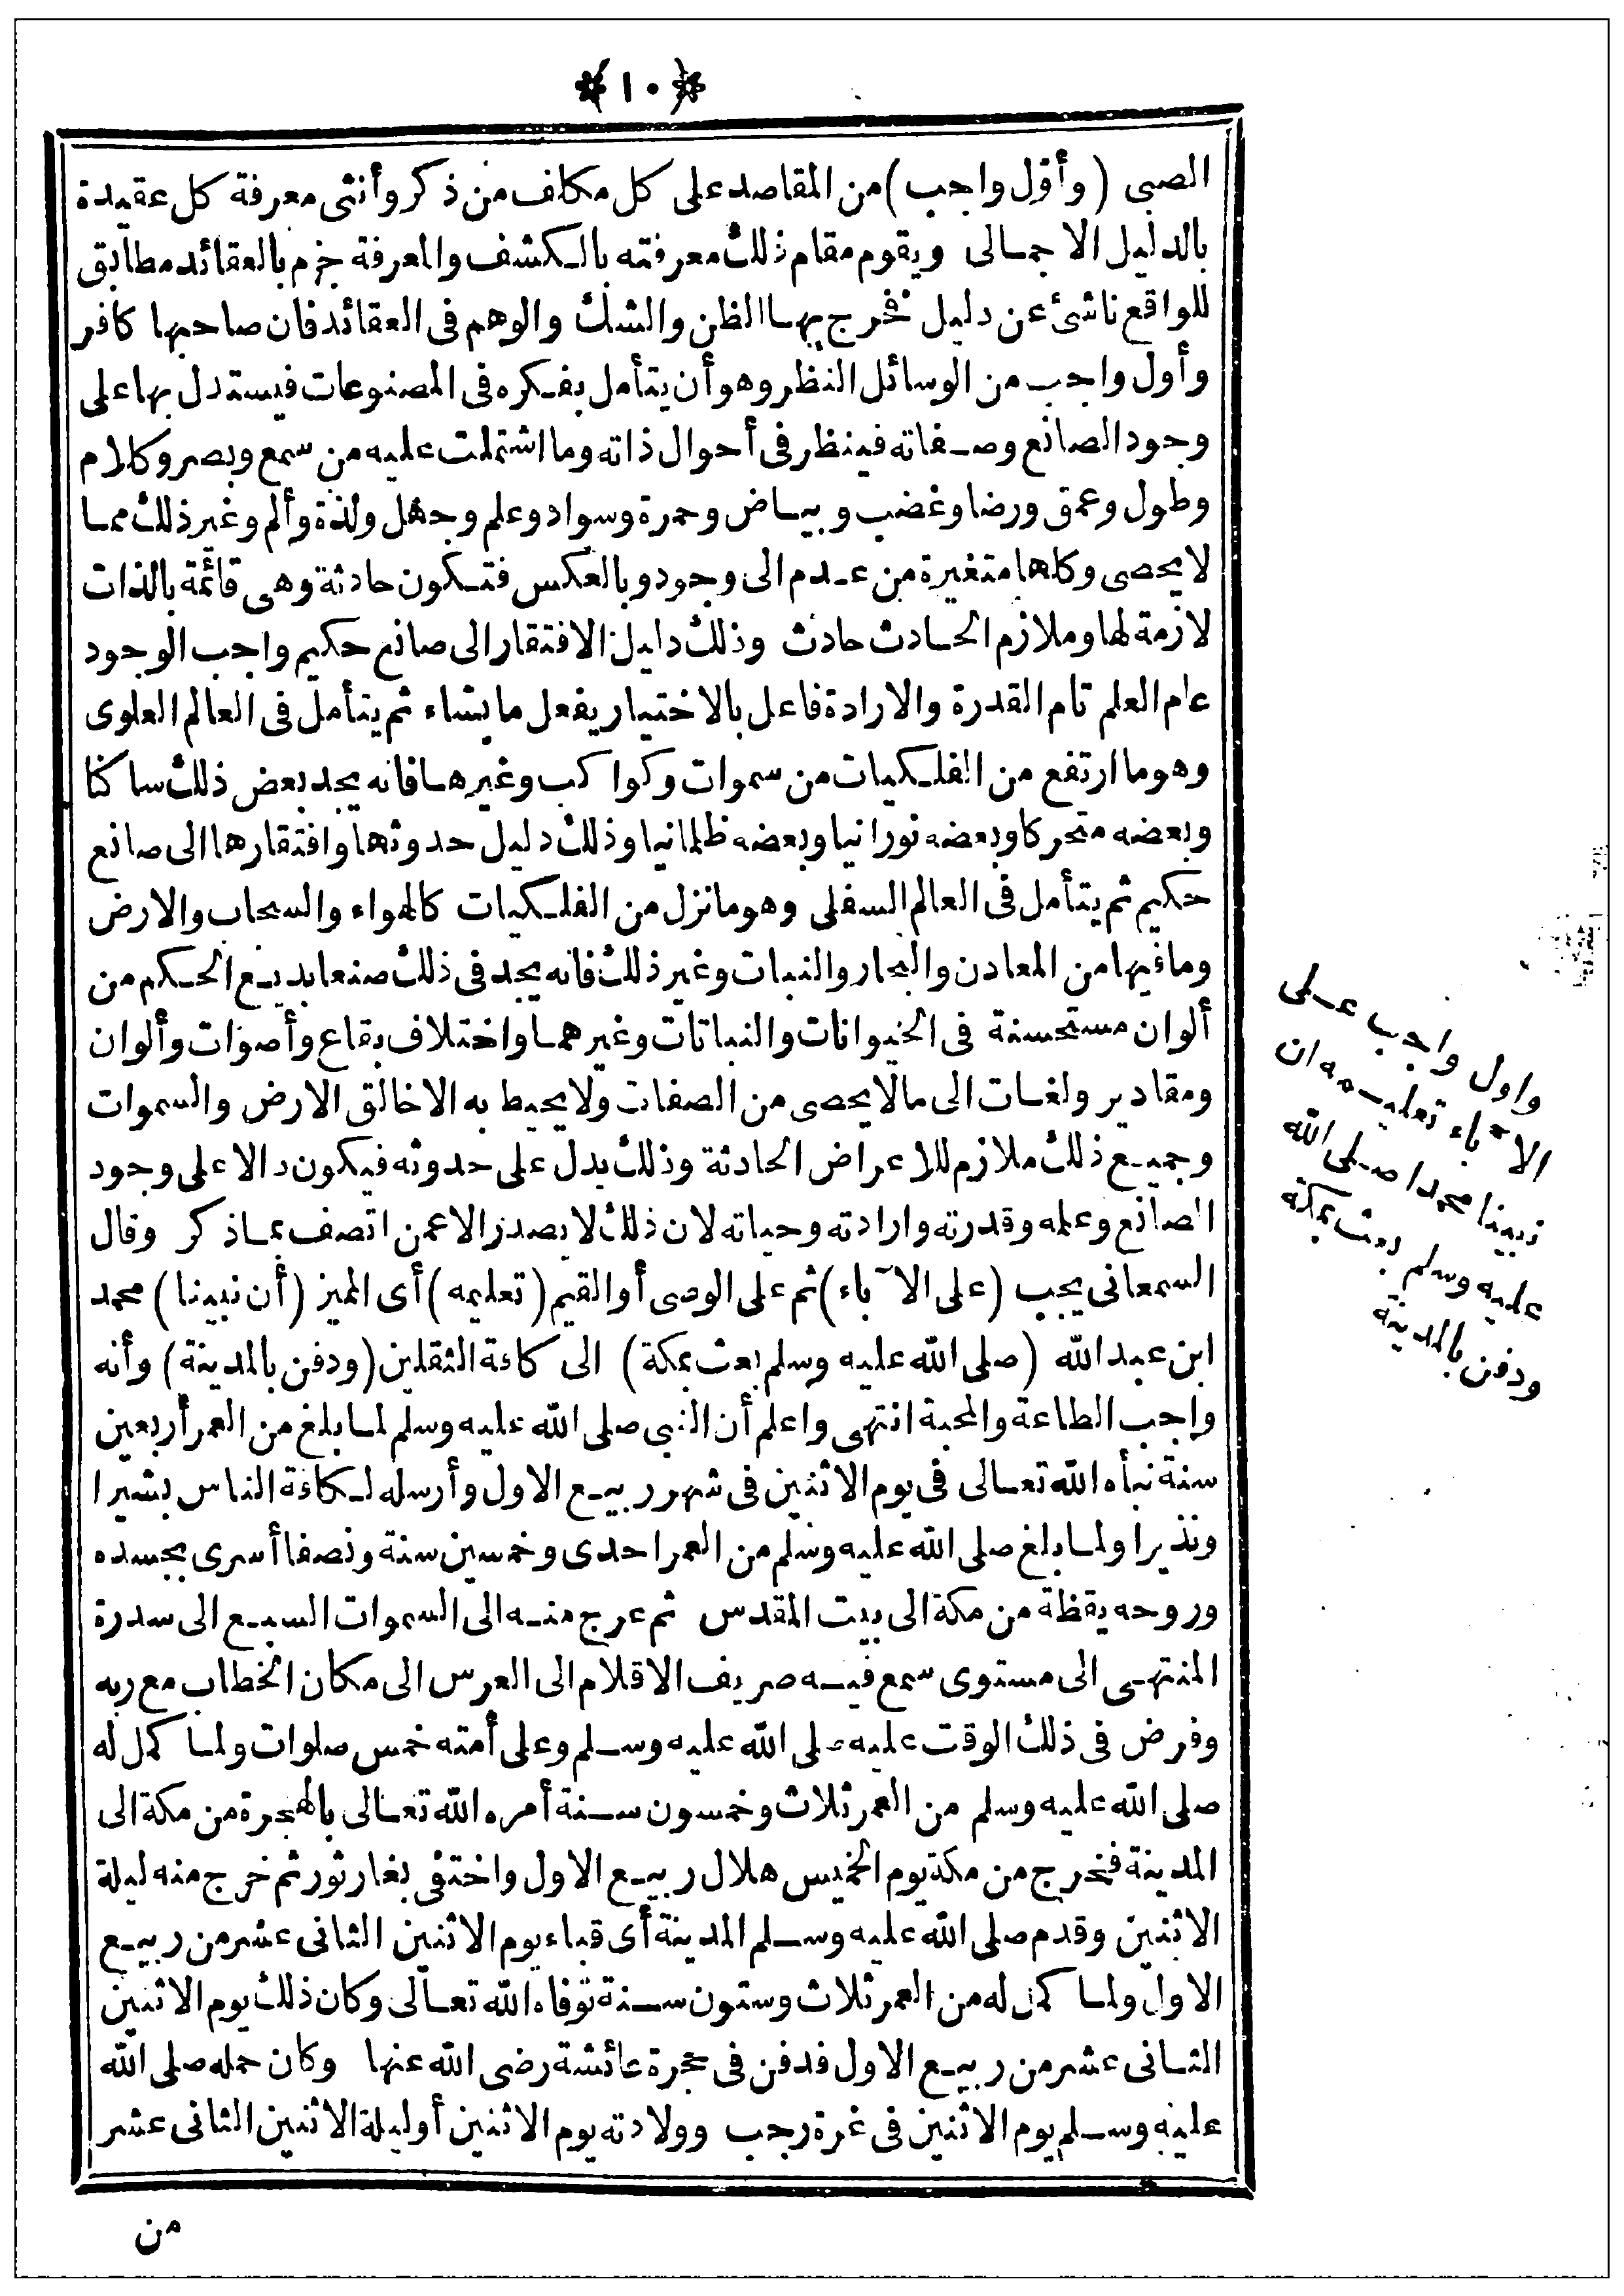 ﴿١٠﴾
الصبى (وأوّل واجب) من المقاصد على كل مكلف من ذكر وأنثى معرفة كل عقيدة
بالدليل الاجمالى ويقوم مقام ذلك معرفته بالكشف والمعرفة جزم بالعقائد مطابق
للواقع ناشئ عن دليل فخرج بها الظن والشك والوهم فى العقائد فان صاحبها كافر
وأول واجب من الوسائل النظر وهو أن يتأمل بفكره فى المصنوعات فيستدل بها على
وجود الصانع وصفاته فينظر فى أحوال ذاته وما اشتملت عليه من سمع وبصر وكلام
وطول وعمق ورضا وغضب وبياض وحمرة وسواد وعلم وجهل ولذة وألم وغير ذلك مما
لا يحصى وكلها متغيرة من عدم الى وجود وبالعكس فتكون حادثة وهى قائمة بالذات
لازمة لها وملازم الحادث حادث وذلك دليل الافتقار الى صانع حكيم واجب الوجود
عام العلم تام القدرة والارادة فاعل بالاختيار يفعل ما يشاء ثم يتأمل فى العالم العلوى
وهو ما ارتفع من الفلكيات من سموات وكواكب وغيرها فانه يجد بعض ذلك ساكنا
وبعضه متحركا وبعضه نورانيا وبعضه ظلمانيا وذلك دليل حدوثها وافتقارها الى صانع
حكيم ثم يتأمل فى العالم السفلى وهو ما نزل من الفلكيات كالهواء والسحاب والارض
وما فيها من المعادن والبحار والنبات وغير ذلك فانه يجد فى ذلك صنعا بديع الحكم من
ألوان مستحسنة فى الحيوانات والنباتات وغيرهما واختلاف بقاع وأصوات وألوان
ومقادير ولغات الى مالا يحصى من الصفات ولا يحيط به الا خالق الارض والسموات
وجميع ذلك ملازم للاعراض الحادثة وذلك يدل على حدوثه فيكون دالا على وجود
الصانع وعلمه وقدرته وارادته وحياته لان ذلك لا يصدر الا عمن اتصف بما ذكر وقال
السمعانى يجب (على الآباء) ثم على الوصى أو القيم (تعليمه) أى المميز (أن نبينا) محمد
ابن عبد الله (صلى الله عليه وسلم بعث بمكة) الى كافة الثقلين (ودفن بالمدينة) وأنه
واجب الطاعة والمحبة انتهى واعلم أن النبى صلى الله عليه وسلم لما بلغ من العمر أربعين
سنة نبأه الله تعالى فى يوم الاثنين فى شهر ربيع الاول وأرسله لكافة الناس بشيرا
ونذيرا ولما بلغ صلى الله عليه وسلم من العمر احدى وخمسين سنة ونصفا أسرى بجسده
وروحه يقظة من مكة الى بيت المقدس ثم عرج منه الى السموات السبع الى سدرة
المنتهى الى مستوى سمع فيه صريف الاقلام الى العرس الى مكان الخطاب مع ربه
وفرض فى ذلك الوقت عليه صلى الله عليه وسلم وعلى أمته خمس صلوات ولما كمل له
صلى الله عليه وسلم من العمر ثلاث وخمسون سنة أمره الله تعالى بالهجرة من مكة الى
المدينة فخرج من مكة يوم الخميس هلال ربيع الاول واختفى بغار ثور ثم خرج منه ليلة
الاثنين وقدم صلى الله عليه وسلم المدينة أى قباء يوم الاثنين الثانى عشر من ربيع
الاول ولما كمل له من العمر ثلاث وستون سنة توفاه الله تعالى وكان ذلك يوم الاثنين
الثانى عشر من ربيع الاول فدفن فى حجرة عائشة رضى الله عنها وكان حمله صلى الله
عليه وسلم يوم الاثنين فى غرة رجب وولادته يوم الاثنين أو ليلة الاثنين الثانى عشر
من
واول واجب على
الآباء تعليمه ان
نبينا محمدا صلى الله
عليه وسلم بعث بمكة
ودفن بالمدينة